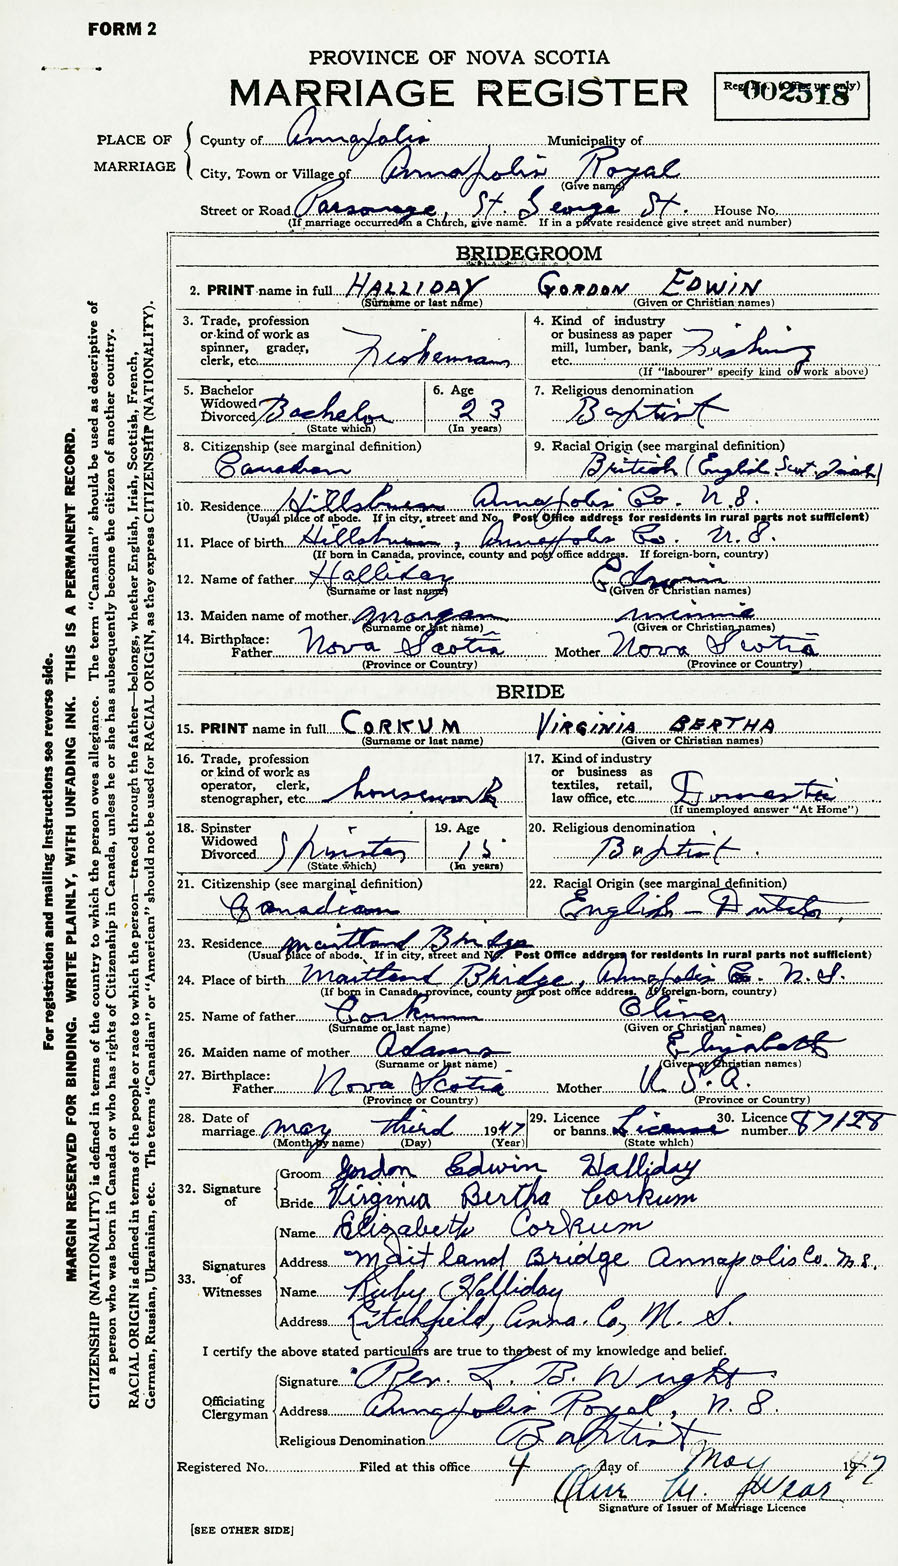 FORM 2
PROVINCE OF NOVA SCOTIA
MARRIAGE REGISTER
Reg. No. (Office use only)
002518
PLACE OF MARRIAGE
County of Annapolis Municipality of
City, Town or Village of Annapolis Royal
(Give name)
Street or Road Parsonage, St. George St. House No.
(If marriage occurred in a Church, give name. If in a private residence give street and number)
BRIDEGROOM
2. PRINT name in full HALLIDAY GORDON EDWIN
(Surname or last name) (Given or Christian names)
3. Trade, profession or kind of work as spinner, grader, clerk, etc. Fisherman
4. Kind of industry or business as paper mill, lumber, bank, etc. Fishing
(If "labourer" specify kind of work above)
5. Bachelor Widowed Divorced Bachelor
(State which)
6. Age 23
(In years)
7. Religious denomination
Baptist
8. Citizenship (see marginal definition)
Canadian
9. Racial Origin (see marginal definition)
British (English Scot. Irish)
10. Residence Hillsburn Annapolis Co. N.S.
(Usual place of abode. If in city, street and No. Post Office address for residents in rural parts not sufficient)
11. Place of birth Hillsburn, Annapolis Co. N.S.
(If born in Canada, province, county and post office address. If foreign-born, country)
12. Name of father Halliday Edwin
(Surname or last name) (Given or Christian names)
13. Maiden name of mother Morgan Minnie
(Surname or last name) (Given or Christian names)
14. Birthplace: Father Nova Scotia Mother Nova Scotia
(Province or Country) (Province or Country)
BRIDE
15. PRINT name in full CORKUM VIRGINIA BERTHA
(Surname or last name) (Given or Christian names)
16. Trade, profession or kind of work as operator, clerk, stenographer, etc. housework
17. Kind of industry or business as textiles, retail, law office, etc. Domestic
(If unemployed answer "At Home")
18. Spinster Widowed Divorced Spinster
(State which)
19. Age 15
(In years)
20. Religious denomination
Baptist.
21. Citizenship (see marginal definition)
Canadian
22. Racial Origin (see marginal definition)
English - Dutch
23. Residence Maitland Bridge
(Usual place of abode. If in city, street and No. Post Office address for residents in rural parts not sufficient)
24. Place of birth Maitland Bridge, Annapolis Co. N.S.
(If born in Canada, province, county and post office address. If foreign-born, country)
25. Name of father Corkum Oliver
(Surname or last name) (Given or Christian names)
26. Maiden name of mother Adams Elizabeth
(Surname or last name) (Given or Christian names)
27. Birthplace: Father Nova Scotia Mother U.S.A.
(Province or Country) (Province or Country)
28. Date of marriage May third 1947
(Month by name) (Day) (Year)
29. Licence or banns License
(State which)
30. Licence number 87128
32. Signature of
Groom Gordon Edwin Halliday
Bride Virginia Bertha Corkum
33. Signatures of Witnesses
Name Elizabeth Corkum
Address Maitland Bridge Annapolis Co. N.S.
Name Ruby Halliday
Address Litchfield, Anna. Co, N. S.
I certify the above stated particulars are true to the best of my knowledge and belief.
Officiating Clergyman
Signature Rev. L. B. Wright
Address Annapolis Royal, N.S.
Religious Denomination Baptist
Registered No. Filed at this office 4 day of May 1947
Signature of Issuer of Marriage Licence
[SEE OTHER SIDE]
For registration and mailing instructions see reverse side.
MARGIN RESERVED FOR BINDING. WRITE PLAINLY, WITH UNFADING INK. THIS IS A PERMANENT RECORD.
CITIZENSHIP (NATIONALITY) is defined in terms of the country to which the person owes allegiance. The term "Canadian" should be used as descriptive of
a person who was born in Canada or who has rights of Citizenship in Canada, unless he or she has subsequently become the citizen of another country.
RACIAL ORIGIN is defined in terms of the people or race to which the person—traced through the father—belongs, whether English, Irish, Scottish, French,
German, Russian, Ukrainian, etc. The terms "Canadian" or "American" should not be used for RACIAL ORIGIN, as they express CITIZENSHIP (NATIONALITY).